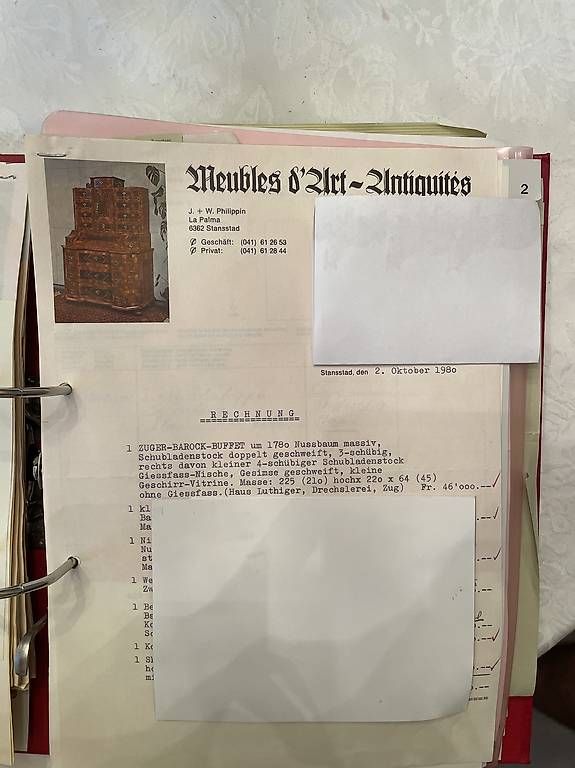 Meubles d'Art-Antiquités
2
J. + W. Philippin
La Palma
6362 Stansstad
Geschäft: (041) 61 26 53
Privat: (041) 61 28 44
Stansstad, den 2. Oktober 198o
RECHNUNG
1 ZUGER-BAROCK-BUFFET um 178o Nussbaum massiv,
Schubladenstock doppelt geschweift, 3-schübig,
rechts davon kleiner 4-schübiger Schubladenstock
Giessfass-Nische, Gesimse geschweift, kleine
Geschirr-Vitrine. Masse: 225 (21o) hochx 22o x 64 (45)
ohne Giessfass.(Haus Luthiger, Drechslerei, Zug) Fr. 46'ooo.--
1 kl
Ba
Ma .--
1 Ni
Nu
st .--
Ma
1 We
Zw .--
1 Be
Be
Ko .--
So .--
1 Ko
1 Sk
ho .--
mi .--